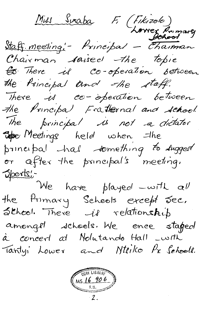 Miss Siraba F. (Fikizolo)
Lower Primary
School
Staff meeting:- Principal - Chairman
Chairman raised the topic
There is co-operation between
the Principal and the staff.
There is co-operation between
the Principal Fraternal and school
The principal is not a dictator
Meetings held when the
principal has something to suggest
or after the principal's meeting.
Sports:-
We have played with all
the Primary Schools except Sec.
School. There is relationship
amongst schools. We once staged
a concert at Nolutando Hall with
Tantyi Lower and Ntsiko Pr. Schools.
CORY LIBRARY
MS 16 906
R.U.
2.